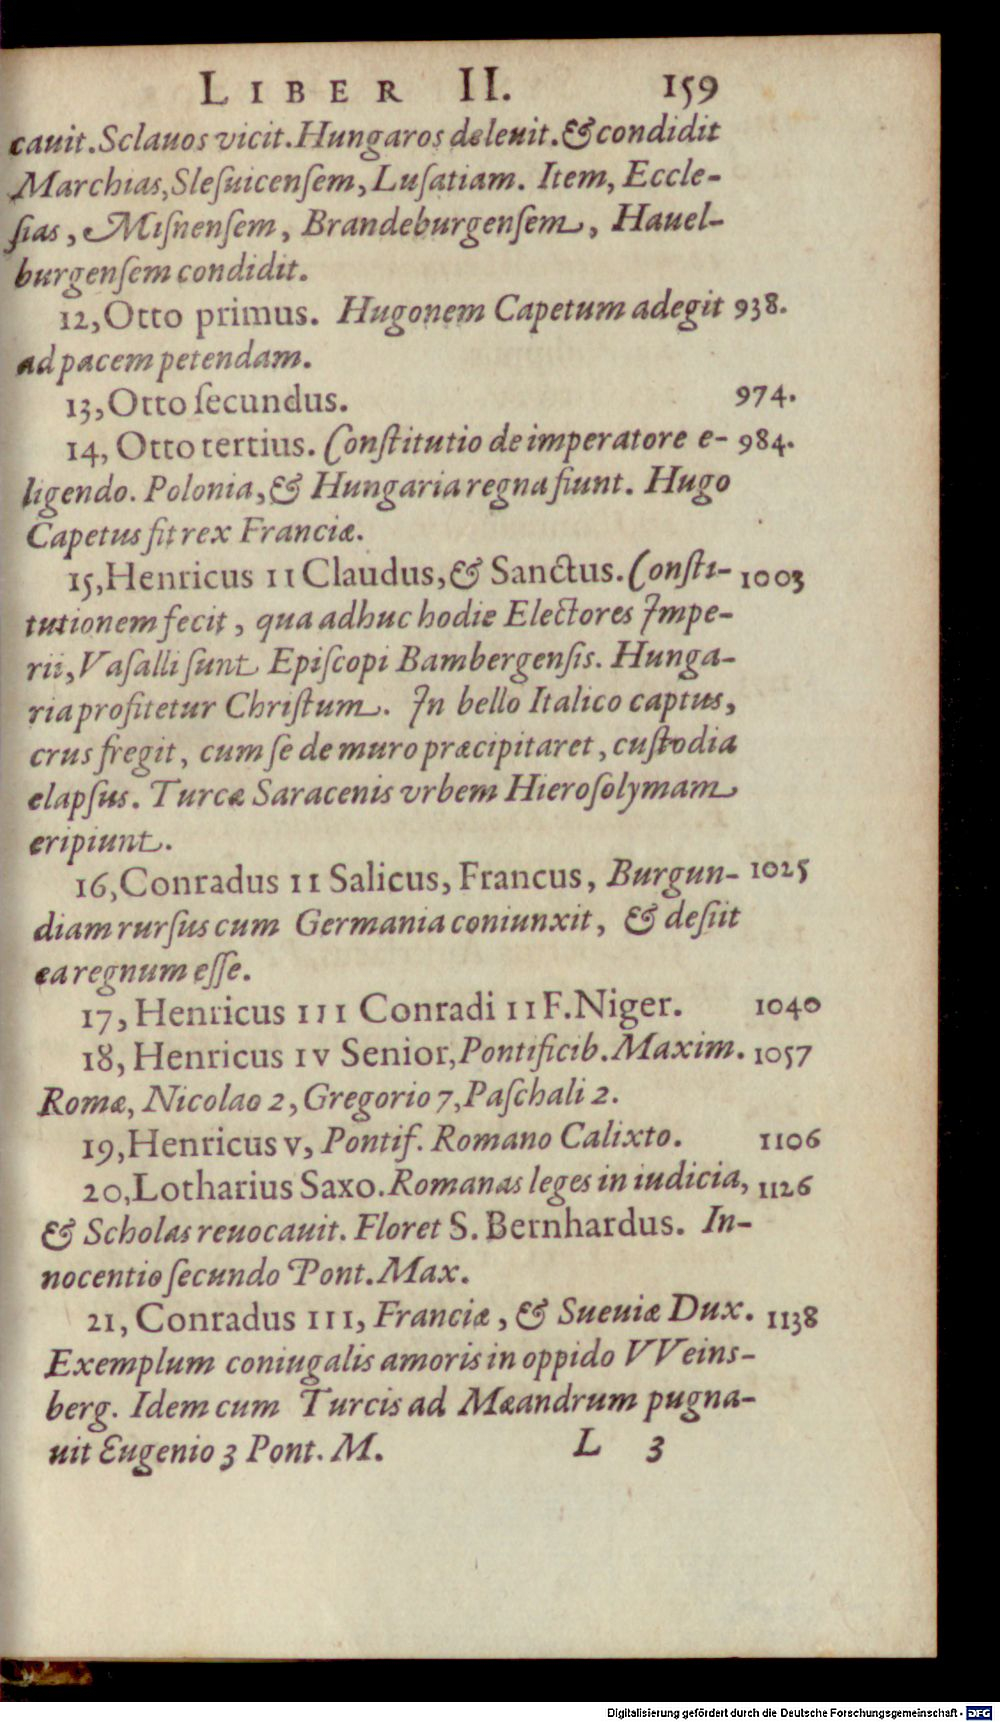 LIBER II. 159
cauit. Sclauos vicit. Hungaros deleuit. & condidit
Marchias, Sleſuicenſem, Luſatiam. Item, Eccle-
ſias, Miſnenſem, Brandeburgenſem, Hauel-
burgenſem condidit.
12, Otto primus. Hugonem Capetum adegit 938.
ad pacem petendam.
13, Otto ſecundus. 974.
14, Otto tertius. Conſtitutio de imperatore e- 984.
ligendo. Polonia, & Hungaria regna fiunt. Hugo
Capetus fit rex Franciæ.
15, Henricus II Claudus, & Sanctus. Conſti- 1003
tutionem fecit, qua adhuc hodie Electores Impe-
rii, Vaſalli ſunt Epiſcopi Bambergenſis. Hunga-
ria profitetur Chriſtum. In bello Italico captus,
crus fregit, cum ſe de muro præcipitaret, cuſtodia
elapſus. Turcæ Saracenis vrbem Hieroſolymam
eripiunt.
16, Conradus II Salicus, Francus, Burgun- 1025
diam rurſus cum Germania coniunxit, & deſiit
ea regnum eſſe.
17, Henricus III Conradi II F. Niger. 1040
18, Henricus IV Senior, Pontificib. Maxim. 1057
Romæ, Nicolao 2, Gregorio 7, Paſchali 2.
19, Henricus V, Pontif. Romano Calixto. 1106
20, Lotharius Saxo. Romanas leges in iudicia, 1126
& Scholas reuocauit. Floret S. Bernhardus. In-
nocentio ſecundo Pont. Max.
21, Conradus III, Franciæ, & Sueuiæ Dux. 1138
Exemplum coniugalis amoris in oppido VVeins-
berg. Idem cum Turcis ad Mæandrum pugna-
uit Eugenio 3 Pont. M. L 3
Digitalisierung gefördert durch die Deutsche Forschungsgemeinschaft - DFG